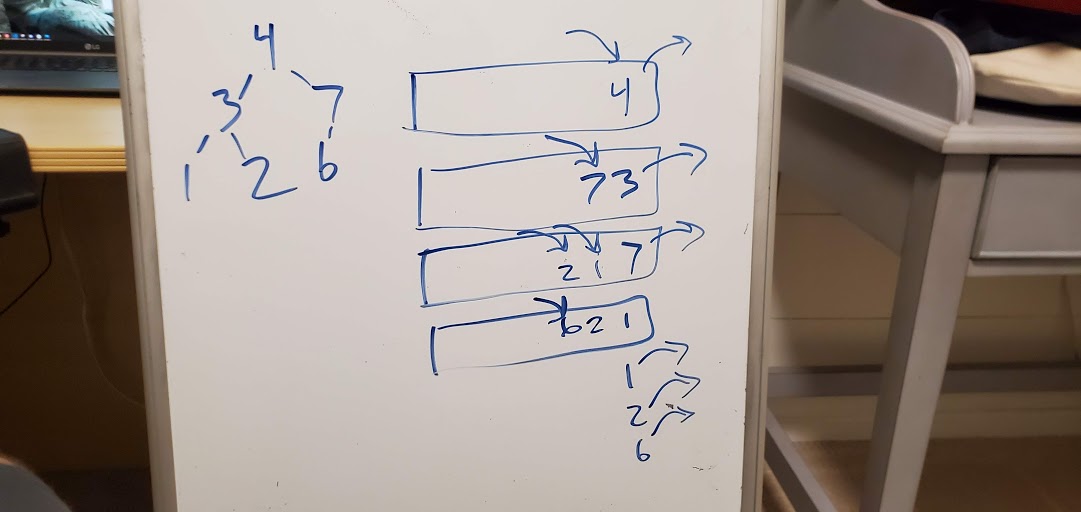 4
3 7
1 2 6
4
7 3
2 1 7
6 2 1
1
2
6
LG